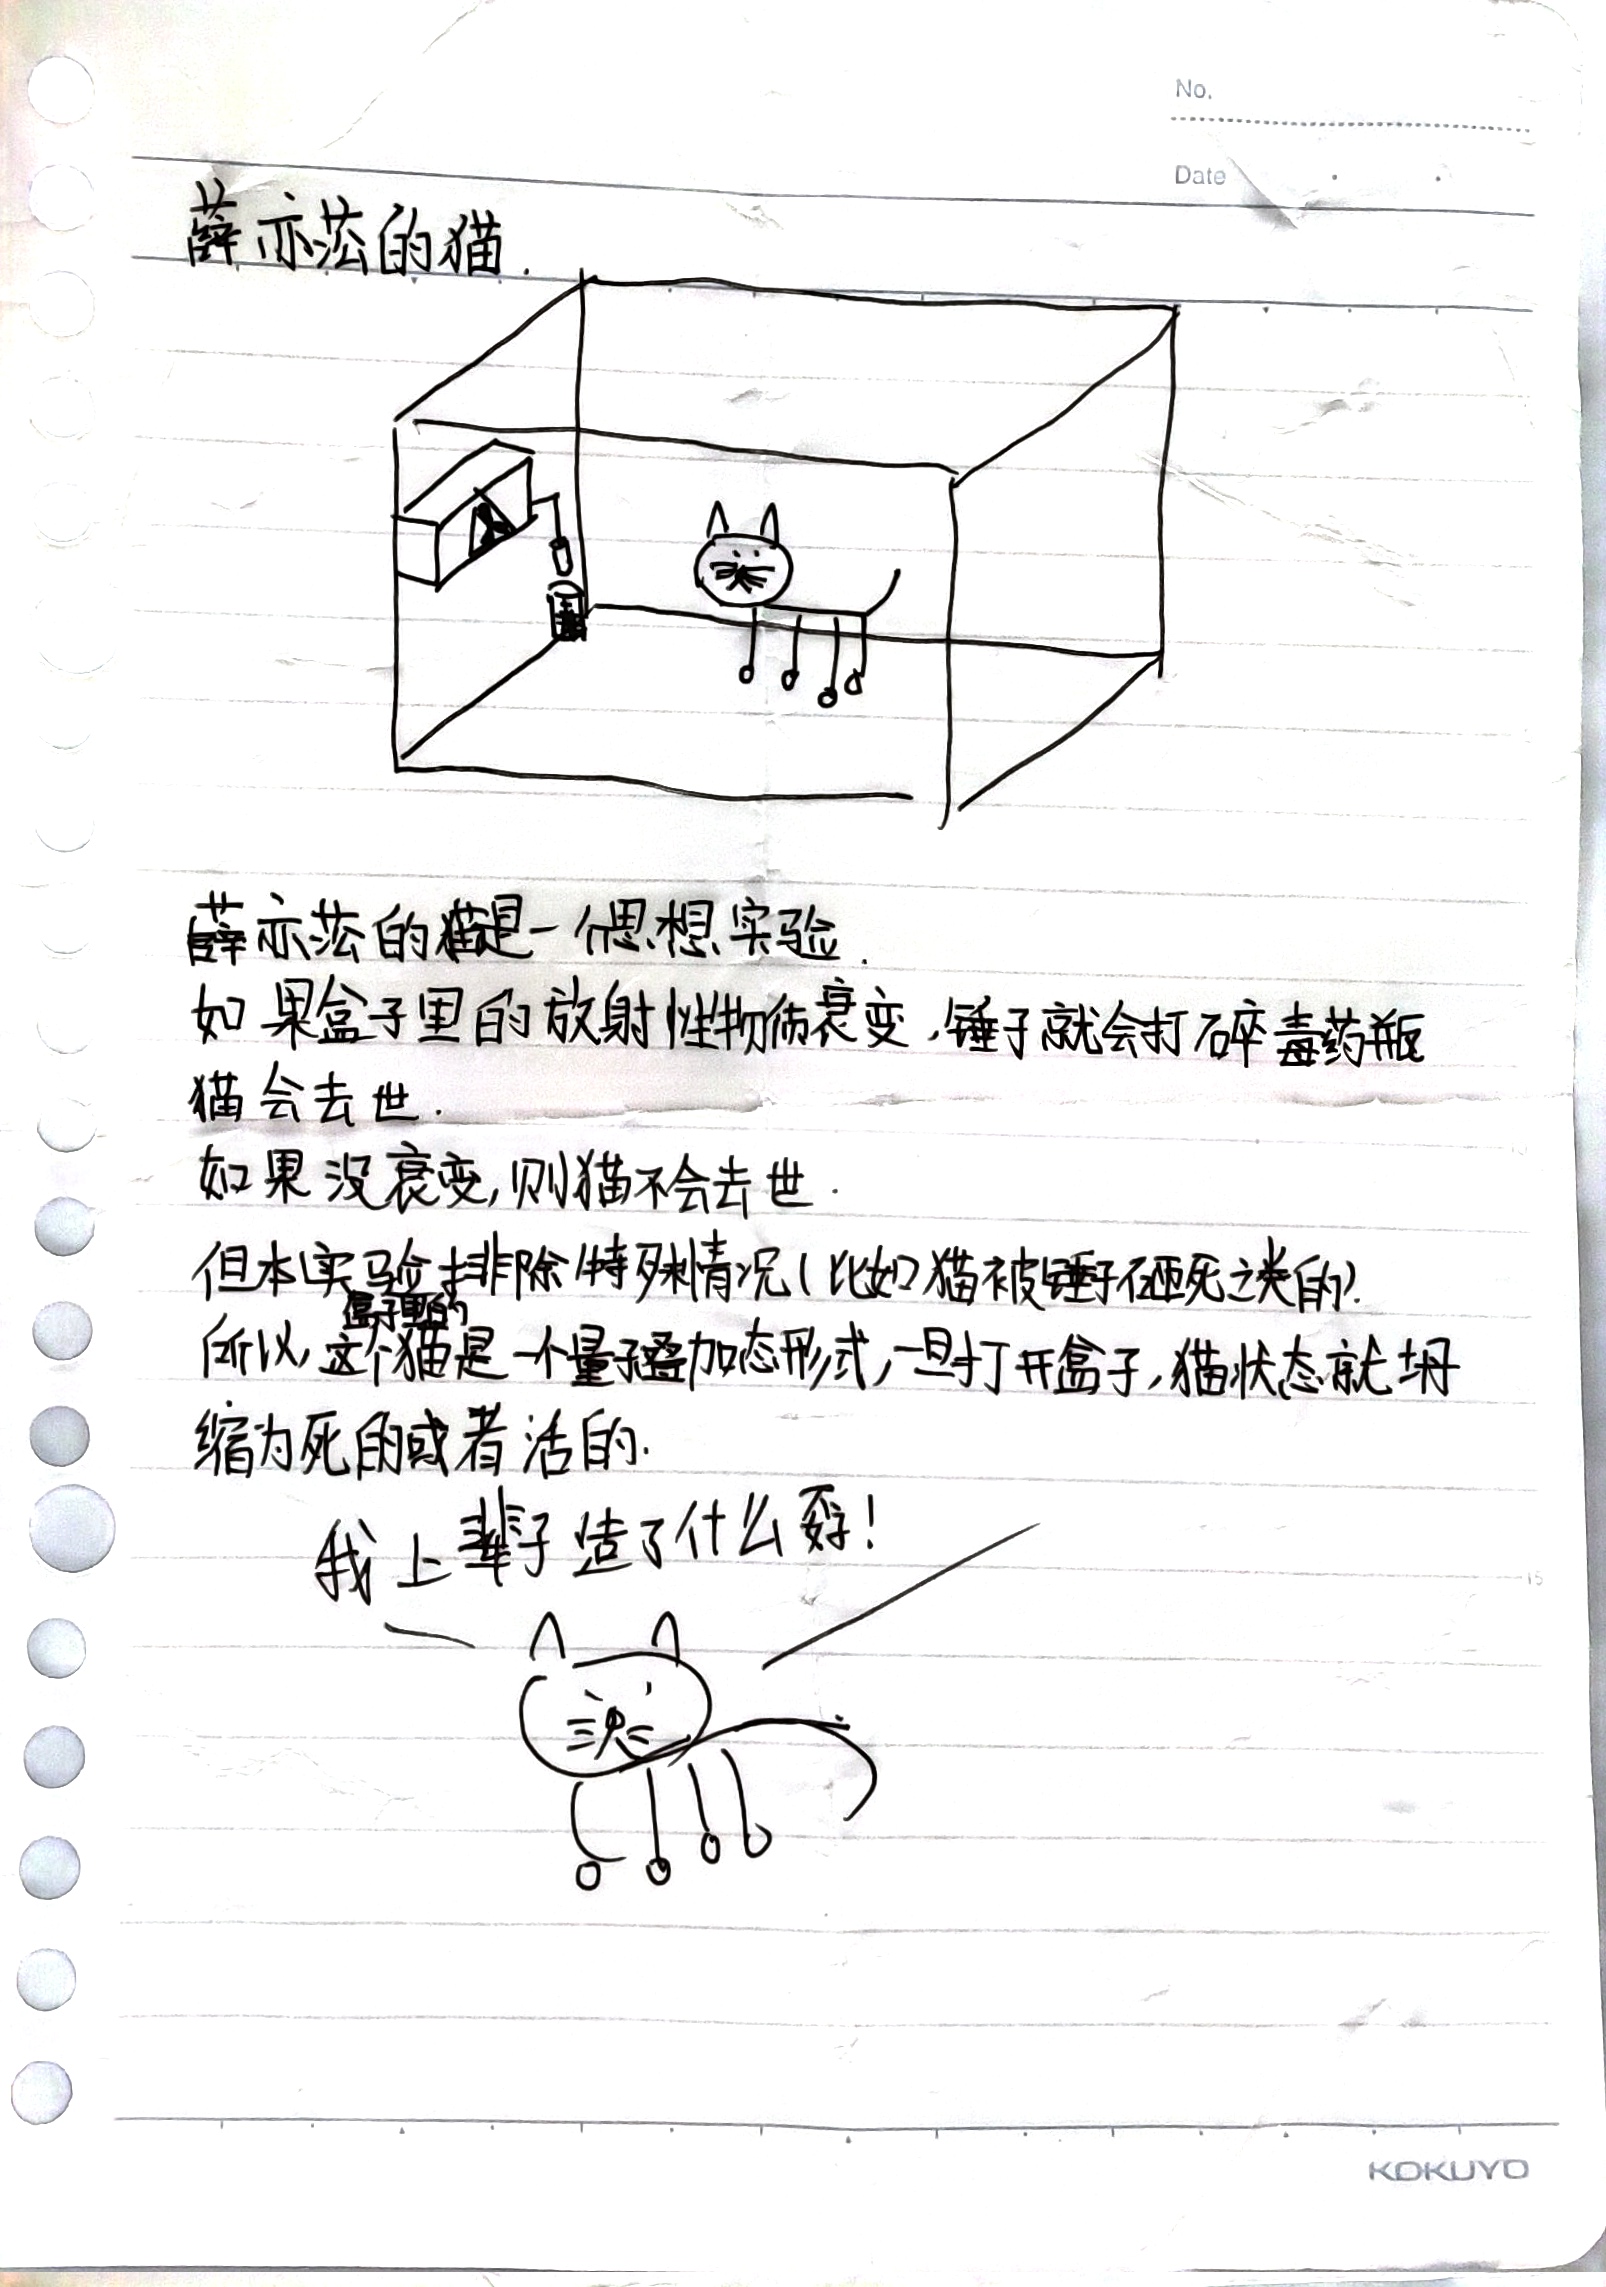 No.
Date
薛亦菘的猫.
薛亦菘的猫是一个思想实验.
如果盒子里的放射性物质衰变,锤子就会打碎毒药瓶
猫会去世.
如果没衰变,则猫不会去世.
但本实验排除特殊情况(比如猫被锤子砸死之类的).
盒子里的
所以,这个猫是一个量子叠加态形式,一旦打开盒子,猫状态就坍
缩为死的或者活的.
我上辈子造了什么孽!
15
KOKUYO